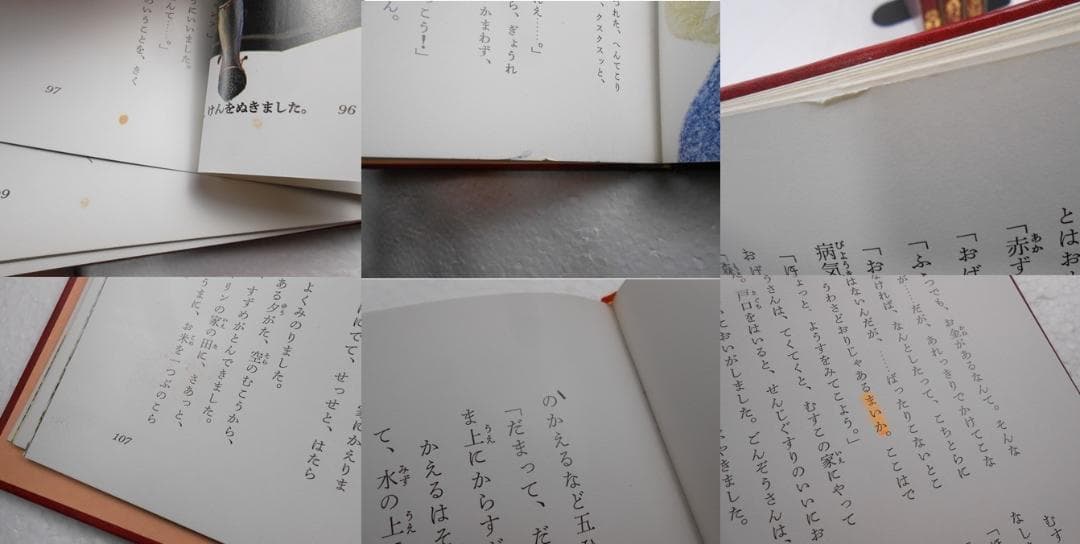 いうことを、きく
にいいました。
んて……。」
97
けんをぬきました。
96
9
られた、へんてこり
、クスクスッと、
ねえ……。」
ら、ぎょうれ
かまわず、
こう！」
ん。
とはお
「赤ず
あか
「おば
よくみのりました。
ある夕がた、空のむこうから、
すずめがとんできました。
リンの家の田に、さあっと、
うまに、お米を一つぶのこら
にでて、せっせと、はたら
家にかえりま
107
のかえるなど五ひ
「だまって、だ
ま上にからすが
うえ
かえるはそ
て、水の上
みず
うえ
「ふつでも、お金があるなんて。そんな
が……だが、あれっきりでかけてこな
「おなければ、なんとしたって、こちとらに
はないんだが、……ばったりこないとこ
病気
びょうき
うわさどおりじゃあるまいか。ここはで
「ちょっと、ようすをみてこよう。」
うさんは、てくてくと、むすこの家にやって
戸口をはいると、せんじぐすりのいいにお
においがしました。ごんぞうさんは、
やきました。
むす
なし